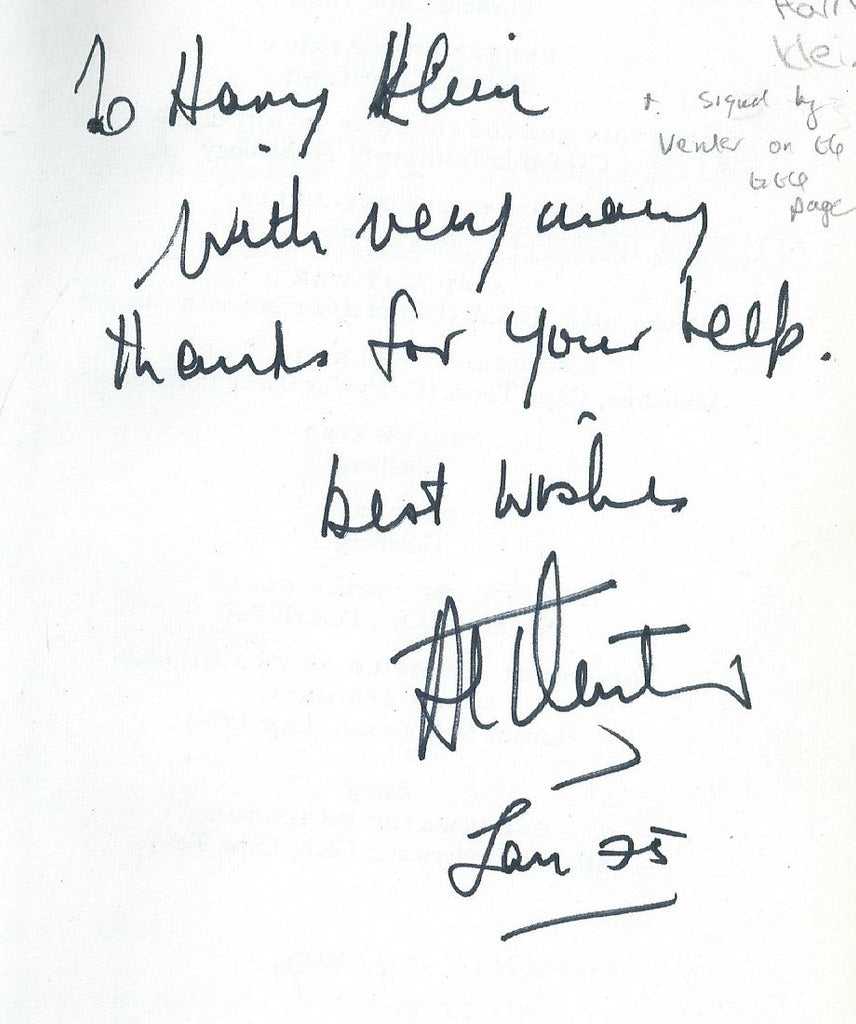 To Harry Klein
with very many
thanks for your help.
best wishes
Al Venter
Jan 75
Harry
Klein
+ signed by
Venter on the
title
page